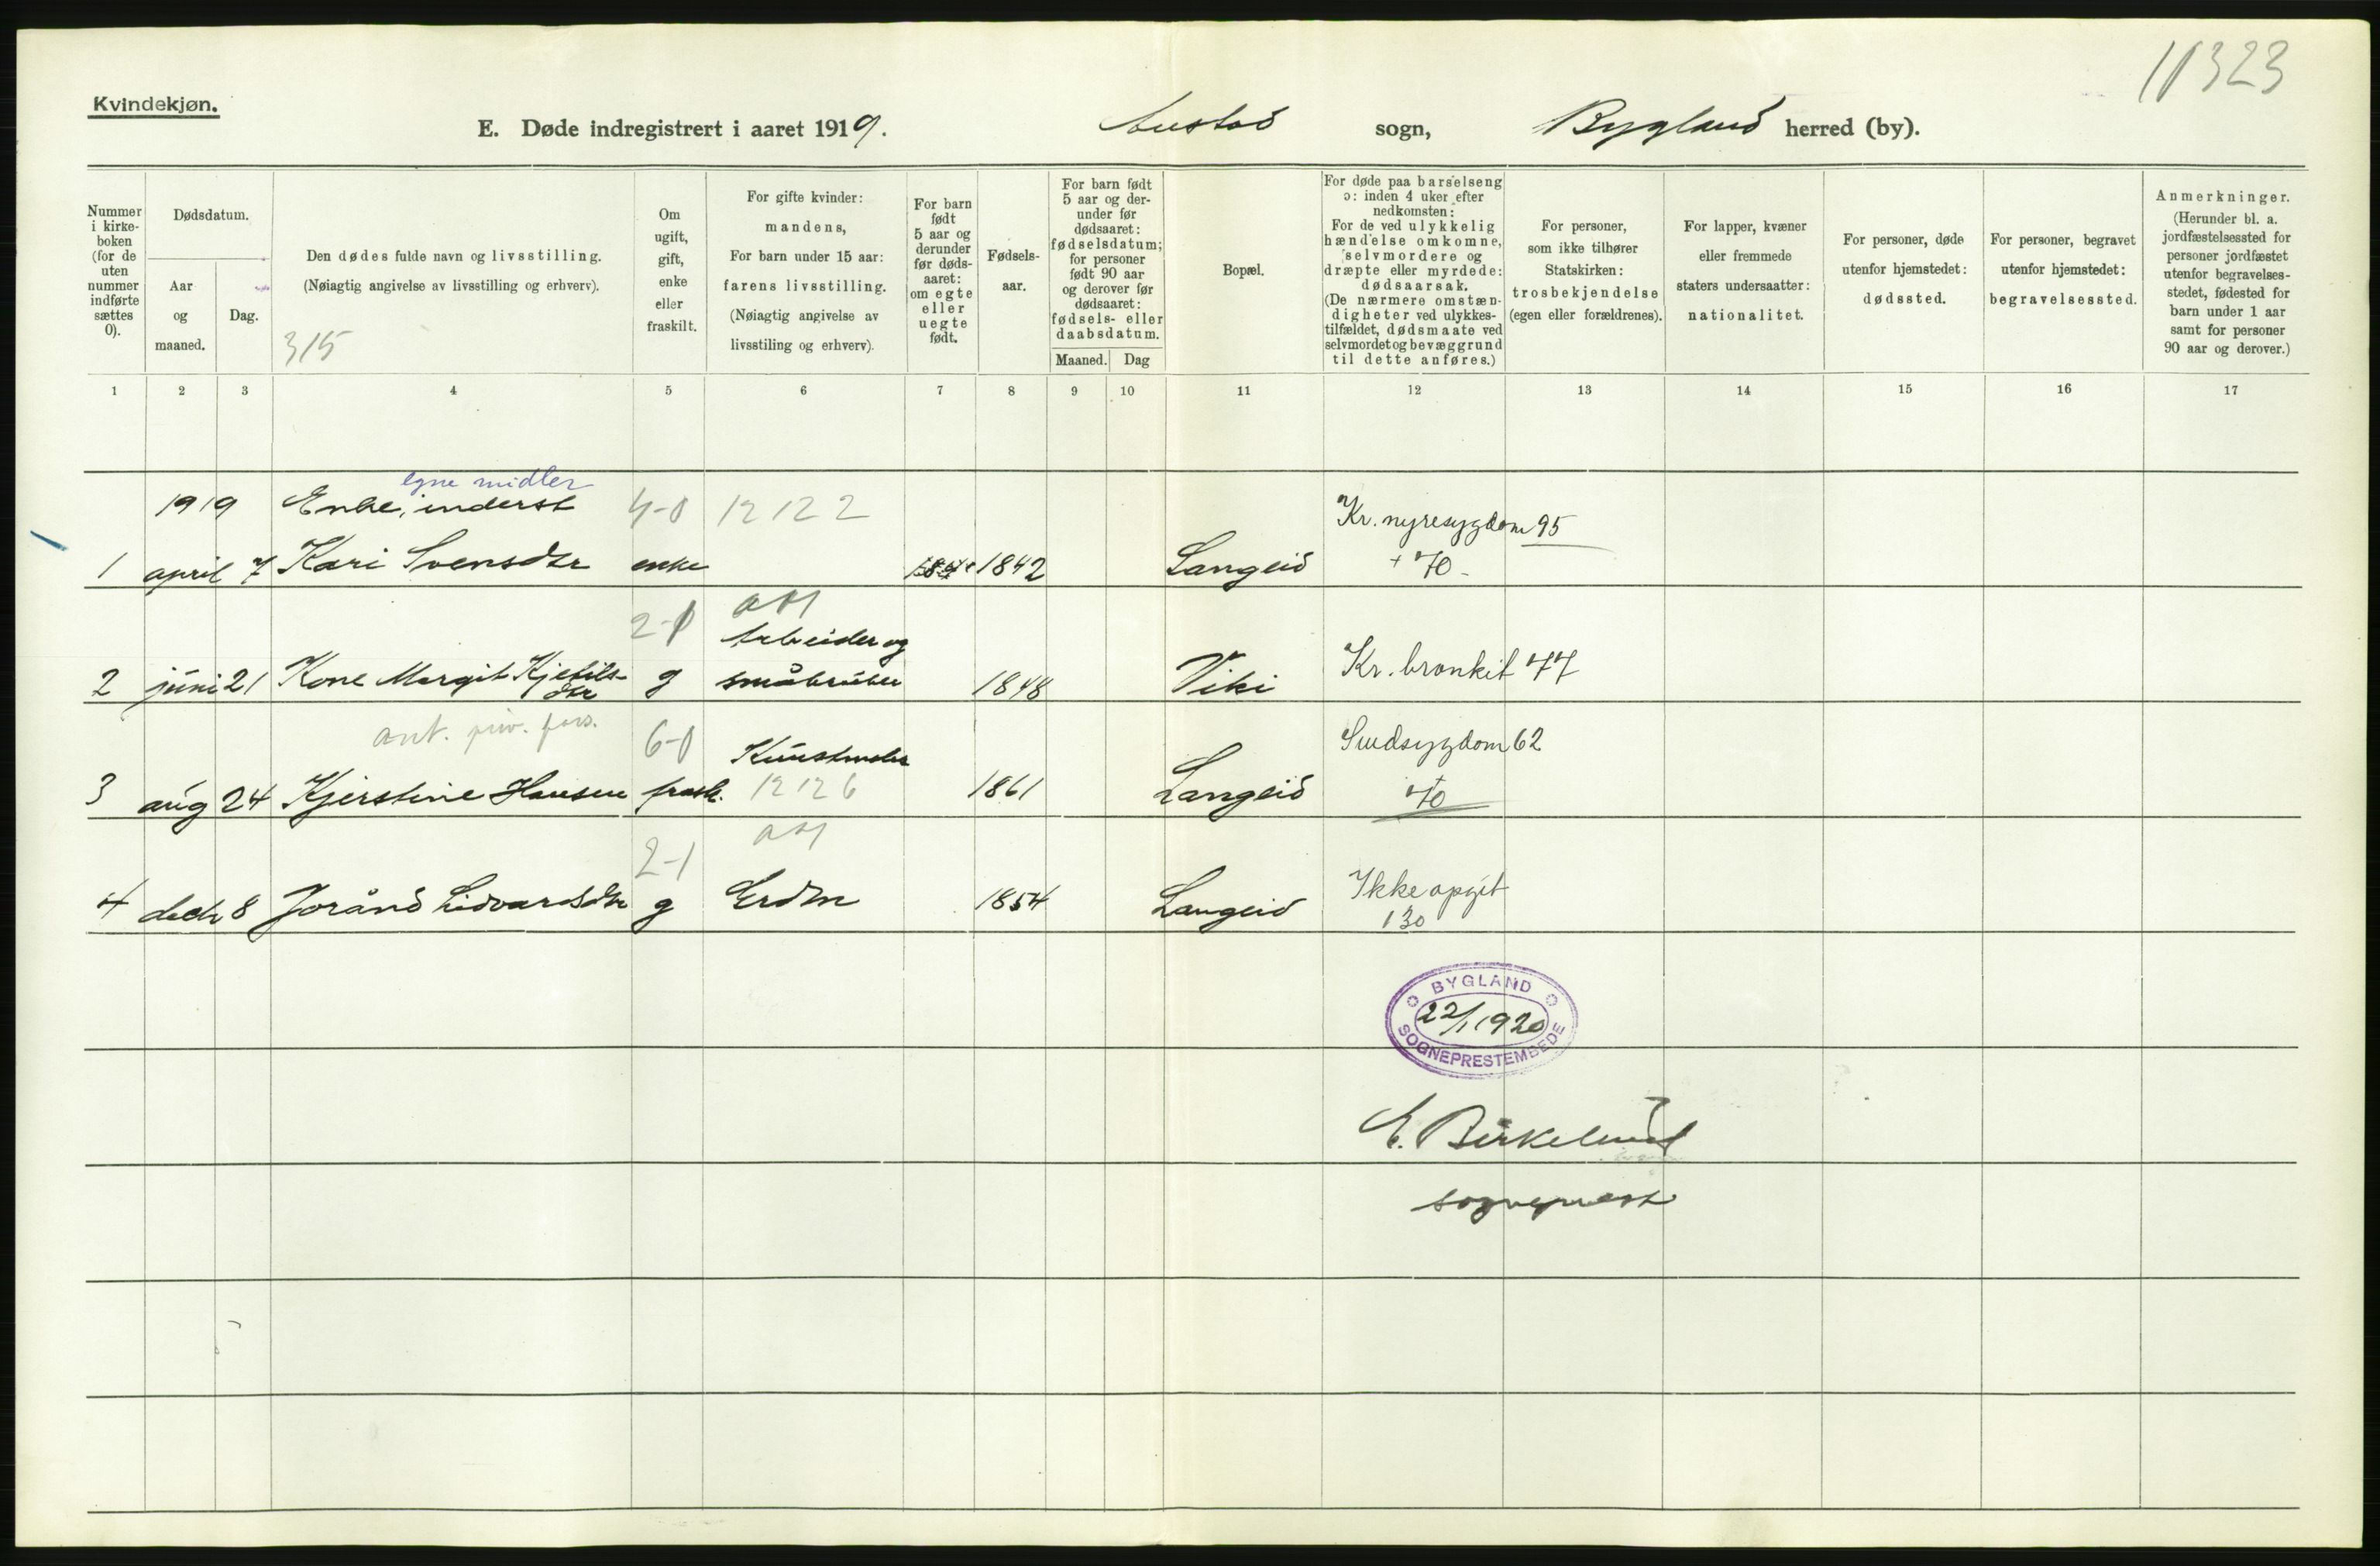 11323
Kvindekjøn.
E. Døde indregistrert i aaret 1919. Austad sogn, Bygland herred (by).
Nummer i kirke-boken (for de uten nummer indførte sættes 0).
Dødsdatum.
Aar og maaned.
Dag.
Den dødes fulde navn og livsstilling.
(Nøiagtig angivelse av livsstilling og erhverv).
315
Om ugift, gift, enke eller fraskilt.
For gifte kvinder: mandens,
For barn under 15 aar: farens livsstilling.
(Nøiagtig angivelse av livsstiling og erhverv).
For barn født 5 aar og derunder før døds-aaret: om egte eller uegte født.
Fødsels-aar.
For barn født 5 aar og der-under før dødsaaret: fødselsdatum; for personer født 90 aar og derover før dødsaaret: fødsels- eller daabsdatum.
Maaned. Dag
Bopæl.
For døde paa barselseng ɔ: inden 4 uker efter nedkomsten:
For de ved ulykkelig hændelse omkomne, selvmordere og dræpte eller myrdede: dødsaarsak.
(De nærmere omstæn-digheter ved ulykkes-tilfældet, dødsmaate ved selvmordet og bevæggrund til dette anføres.)
For personer, som ikke tilhører Statskirken: trosbekjendelse (egen eller forældrenes).
For lapper, kvæner eller fremmede staters undersaatter: nationalitet.
For personer, døde utenfor hjemstedet: dødssted.
For personer, begravet utenfor hjemstedet: begravelsessted.
Anmerkninger.
(Herunder bl. a. jordfæstelsessted for personer jordfæstet utenfor begravelses-stedet, fødested for barn under 1 aar samt for personer 90 aar og derover.)
1 2 3 4 5 6 7 8 9 10 11 12 13 14 15 16 17
egne midler
1919 Enke, inderst 4-0 12122 Kr. nyresygdom 95
1 april 7 Kari Svensdtr enke 1842 Langeid + 70
2-1
Arbeider og
2 juni 21 Kone Margit Kjetils-dtr g småbruker 1848 Viki Kr. bronkit 77
ant. priv. fors. 6-0 Kunstmaler Sindsygdom 62
3 aug 24 Kjerstine Hansen frask. 12126 1861 Langeid 70
2-1
4 decbr 8 Jorånd Lidvardsdtr g Grdbr 1854 Langeid Ikke opgit
130
BYGLAND
22/1 1920
SOGNEPRESTEMBEDE
E. Birkelund
sogneprest